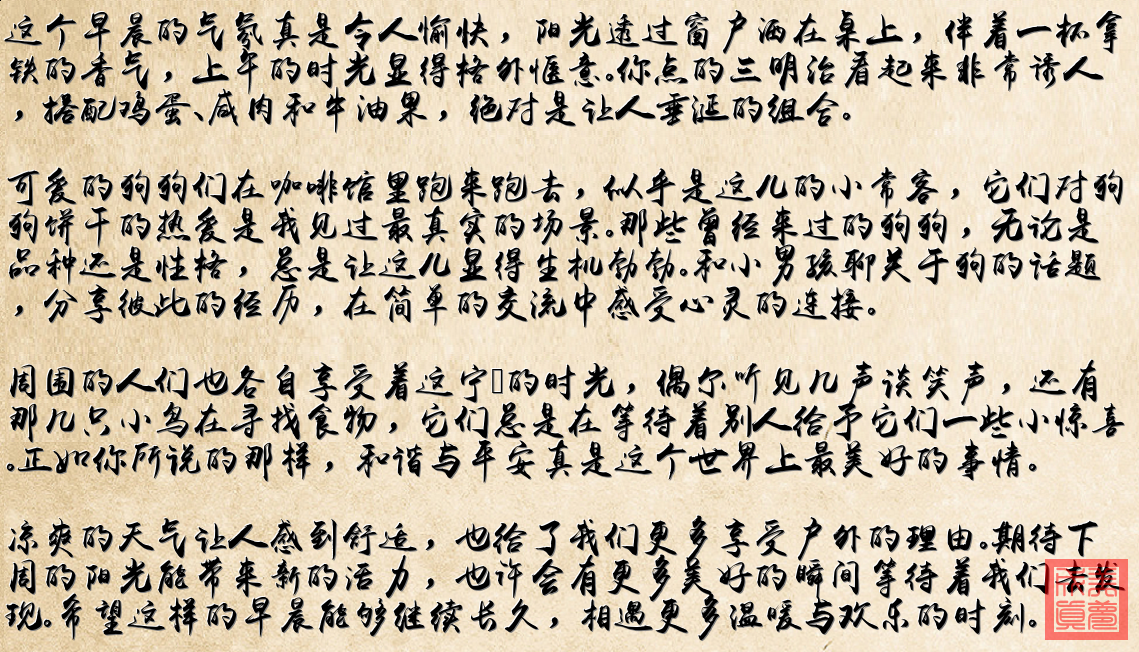 这个早晨的气氛真是令人愉快，阳光透过窗户洒在桌上，伴着一杯拿
铁的香气，上午的时光显得格外惬意。你点的三明治看起来非常诱人
，搭配鸡蛋、咸肉和牛油果，绝对是让人垂涎的组合。
可爱的狗狗们在咖啡馆里跑来跑去，似乎是这儿的小常客，它们对狗
狗饼干的热爱是我见过最真实的场景。那些曾经来过的狗狗，无论是
品种还是性格，总是让这儿显得生机勃勃。和小男孩聊关于狗的话题
，分享彼此的经历，在简单的交流中感受心灵的连接。
周围的人们也各自享受着这宁的时光，偶尔听见几声谈笑声，还有
那几只小鸟在寻找食物，它们总是在等待着别人给予它们一些小惊喜
。正如你所说的那样，和谐与平安真是这个世界上最美好的事情。
凉爽的天气让人感到舒适，也给了我们更多享受户外的理由。期待下
周的阳光能带来新的活力，也许会有更多美好的瞬间等待着我们去发
现。希望这样的早晨能够继续长久，相遇更多温暖与欢乐的时刻。